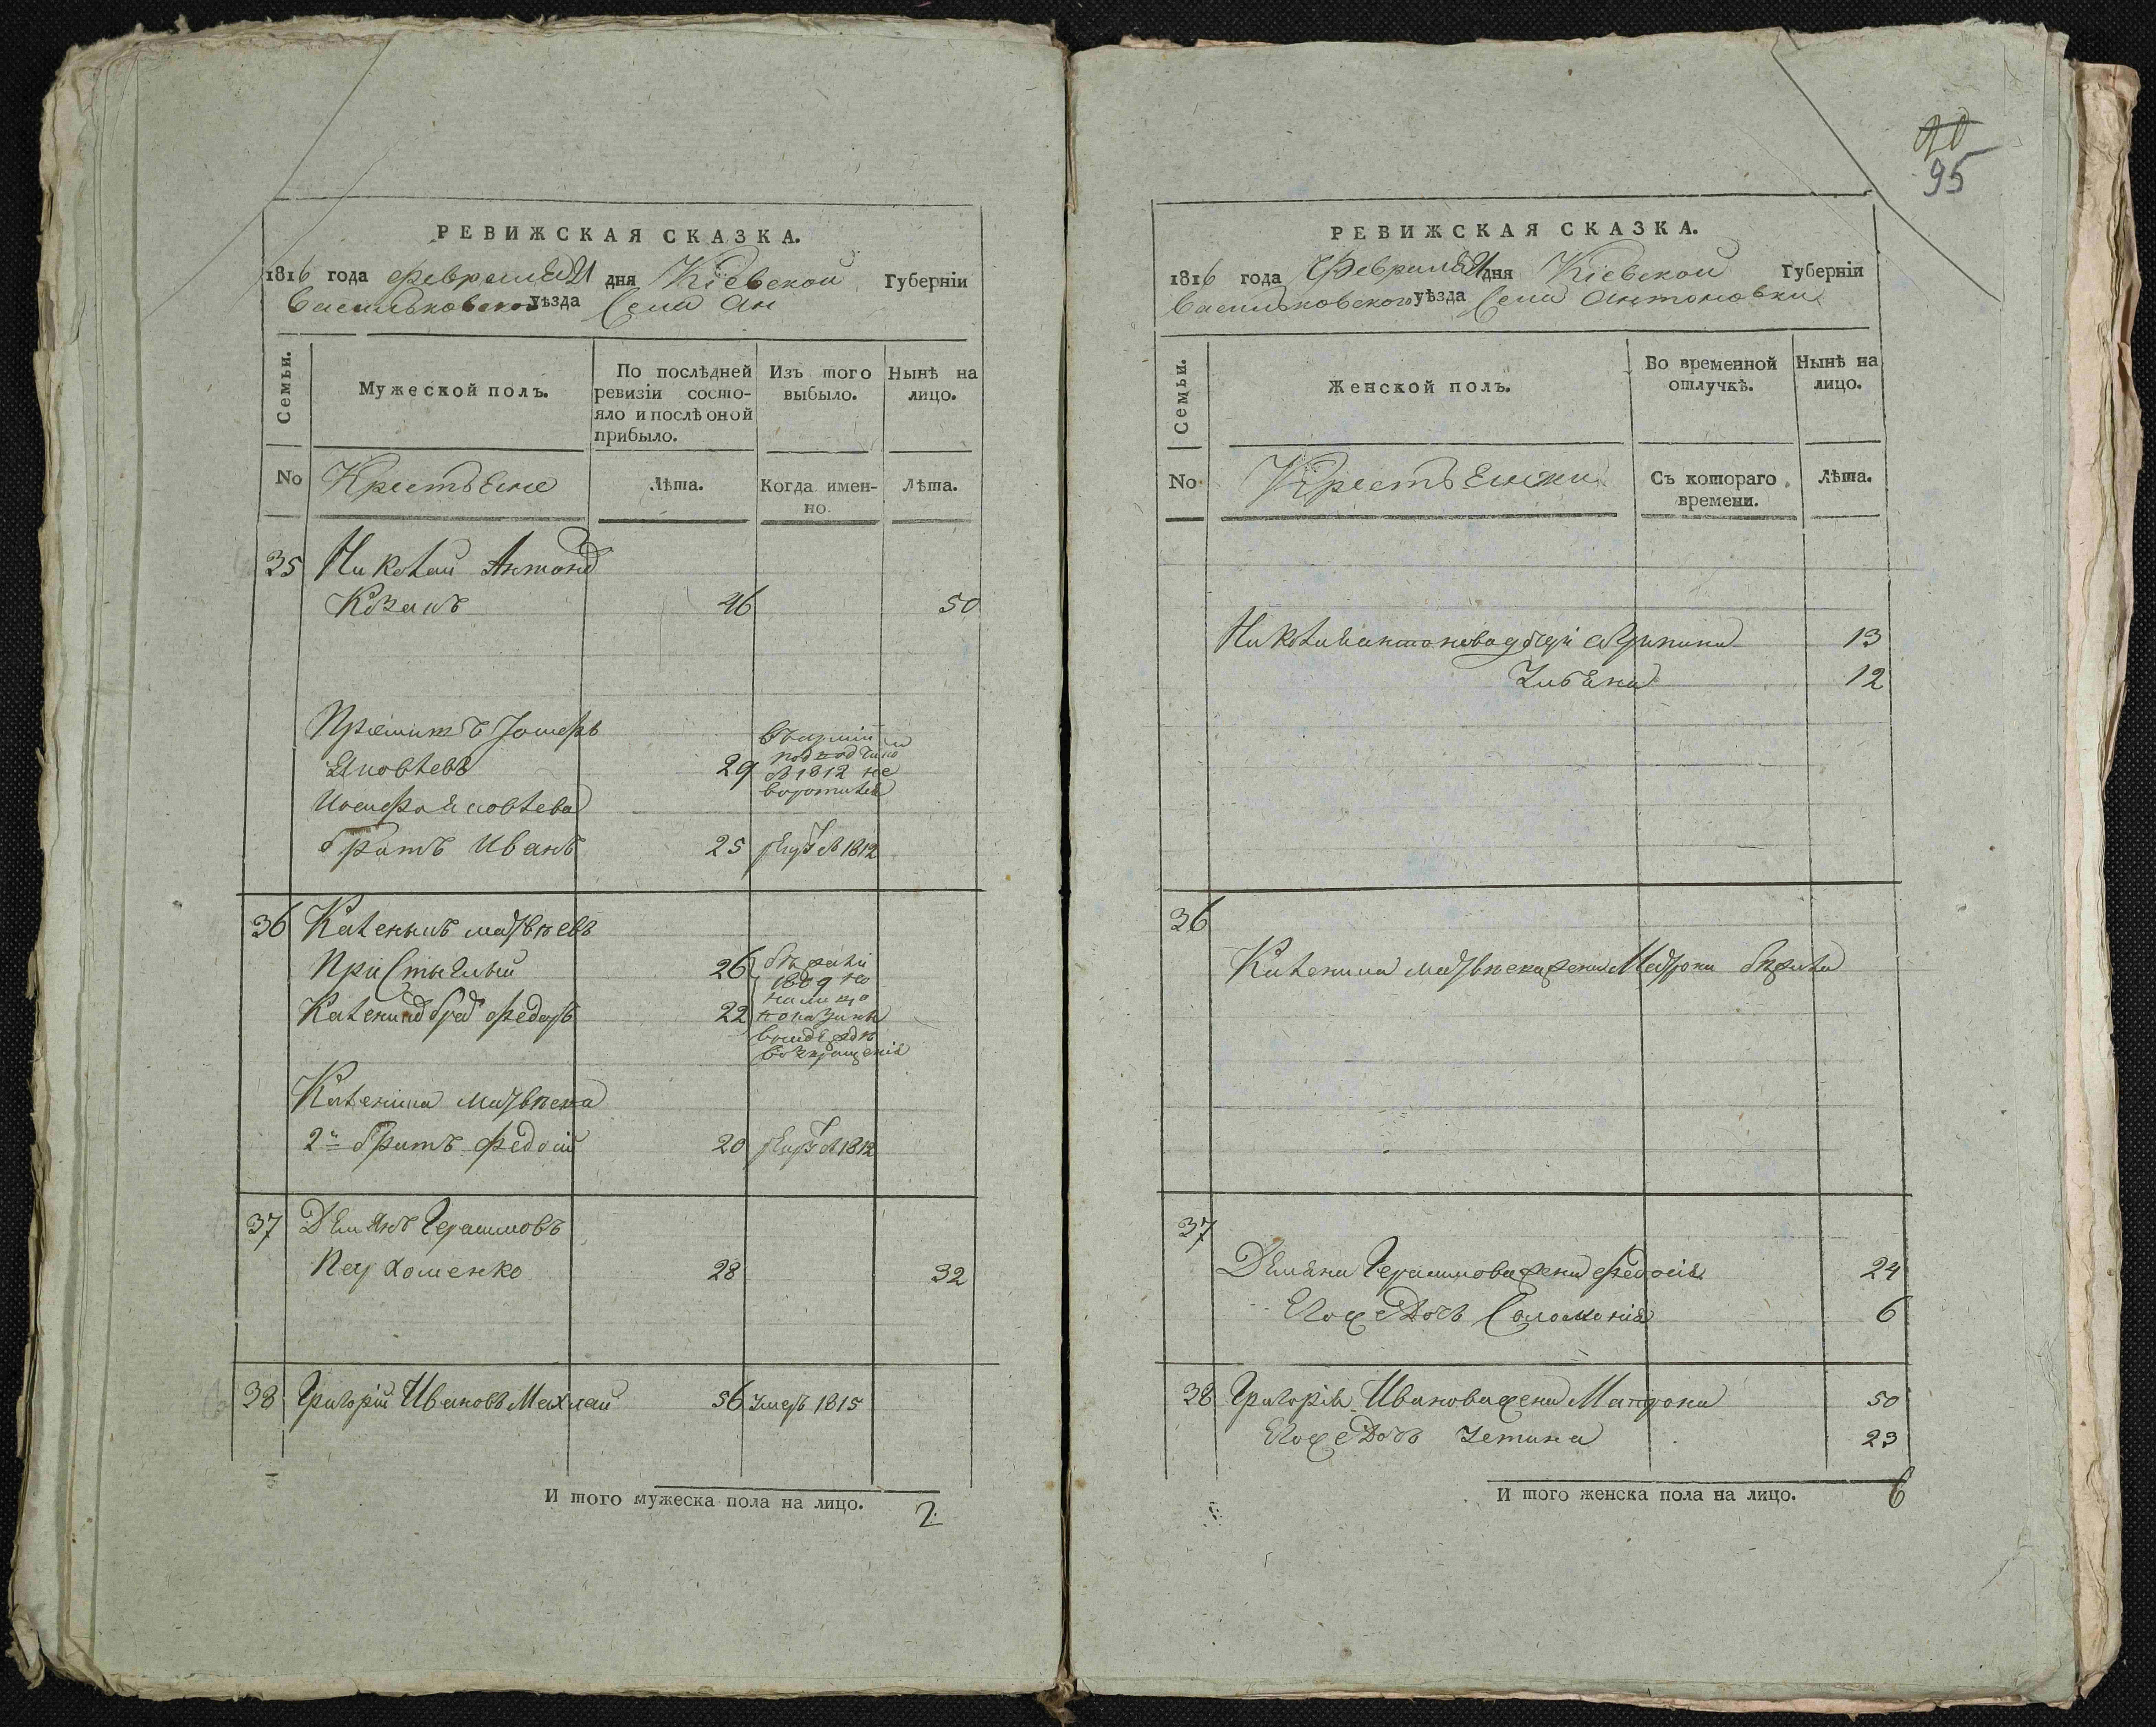 РЕВИЖСКАЯ СКАЗКА.
1816 года февраля дня Кіевской Губерніи
Васильковского уѣзда Села Ан
Семьи.
Мужеской полъ.
По послѣдней ревизіи состояло и послѣ оной прибыло.
Изъ того выбыло.
Нынѣ на лицо.
No
Крестьяне
Лѣта.
Когда именно.
Лѣта.
35 Николай Антоновъ
Козакъ 46 50
Яковлевъ 29
в 1812 не
Иосифа Яковлева
братъ Иванъ 25 1812
36 Каленикъ
26
1809
Калениковъ братъ Федоръ 22
Каленика
2й братъ Федосій 20 1812
37 Демьянъ Герасимовъ
Пархоменко 28 32
38 Григорій Ивановъ Махлай 56 умеръ 1815
И того мужеска пола на лицо. 2
90
95
РЕВИЖСКАЯ СКАЗКА.
1816 года Февраля дня Кіевской Губерніи
Васильковского уѣзда Села Антоновки
Семьи.
Женской полъ.
Во временной отлучкѣ.
Нынѣ на лицо.
No
Крестьянки
Съ котораго времени.
Лѣта.
Николая Антонова дочери 13
12
36
Каленика жена бѣжала
37
Демьяна Герасимова жена Федосія 24
Егоже Дочь Соломонія 6
38 Григорія Иванова жена Матрона 50
Егоже Дочь 23
И того женска пола на лицо. 6